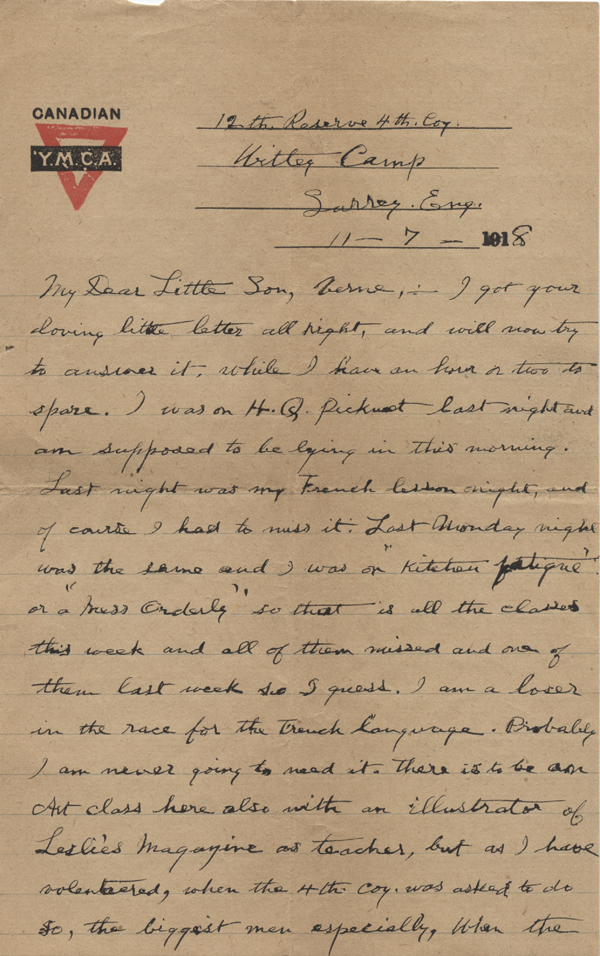 CANADIAN
Y.M.C.A.
12th. Reserve 4th. Coy.
Witley Camp
Surrey. Eng.
11 – 7 – 1918
My Dear Little Son, Verne, :– I got your
loving little letter all right, and will now try
to answer it, while I have an hour or two to
spare. I was on H.Q. Picket last night and
am supposed to be lying in this morning.
Last night was my French lesson night, and
of course I had to miss it. Last Monday night
was the same and I was on "Kitchen fatigue"
or a "Mess Orderly" so that is all the classes
this week and all of them missed and one of
them last week so I guess. I am a loser
in the race for the French language. Probably
I am never going to need it. There is to be an
Art class here also with an illustrator of
Leslie's Magazine as teacher, but as I have
volenteered, when the 4th. Coy. was asked to do
so, the biggest men especially, When the